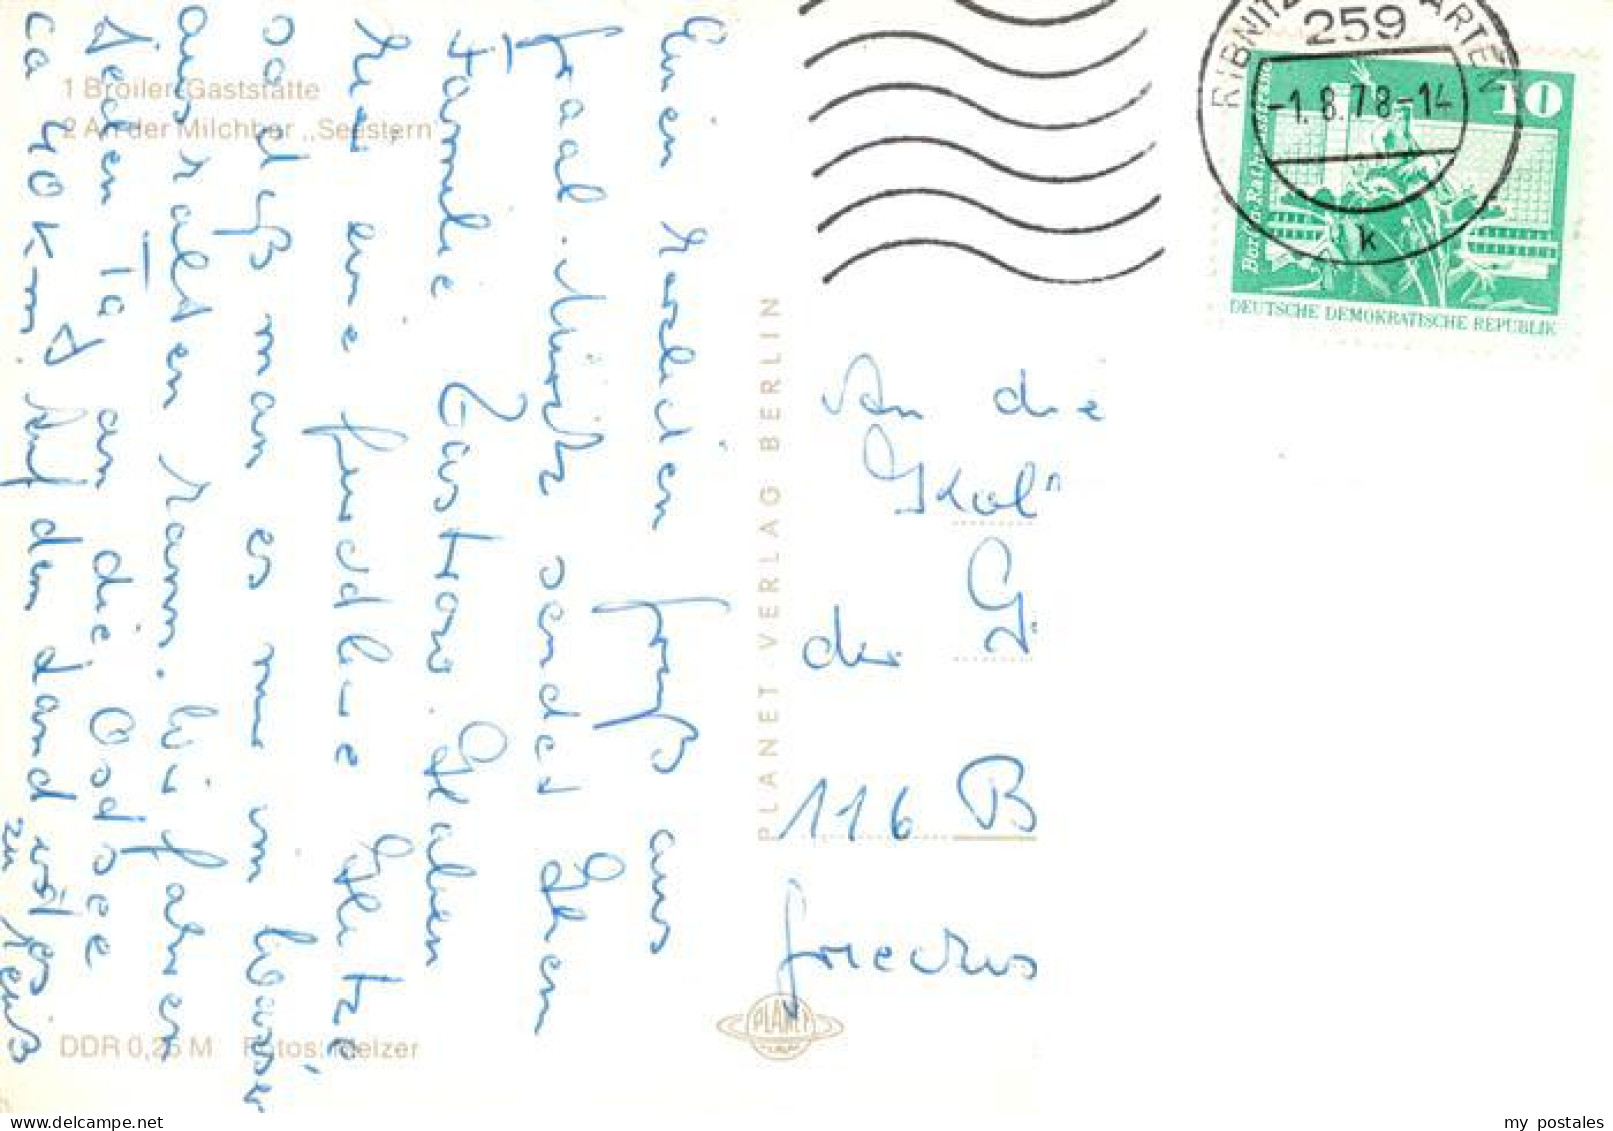 Einen herzlichen Gruß aus
Graal-Müritz sendet Ihnen
Familie Zastrow. Haben
hier eine furchtbare Hitze
sodaß man es nur im Wasser
aushalten kann. Wir fahren
jeden Tag an die Ostsee
ca 40 km. Auf dem Land ist es
zu heiß
1 Broiler-Gaststätte
2 An der Milchbar „Seestern"
DDR 0,25 M Fotos: Melzer
PLANET-VERLAG BERLIN
PLANET
RIBNITZ GARTEN
259
-1.8.78-14
k
10
DEUTSCHE DEMOKRATISCHE REPUBLIK
An die
der G
116 B
my postales